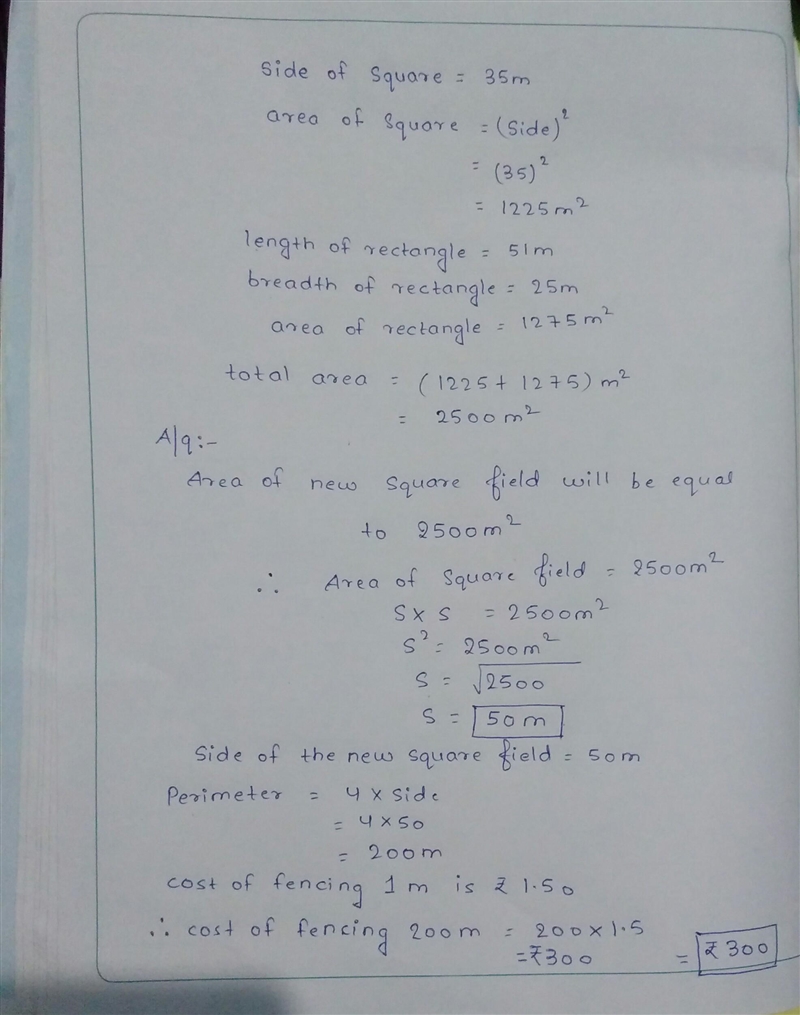 Side of Square = 35m
area of Square = (Side)²
= (35)²
= 1225m²
length of rectangle = 51m
breadth of rectangle = 25m
area of rectangle = 1275m²
total area = (1225 + 1275) m²
= 2500m²
A/q:-
Area of new Square field will be equal
to 2500m²
∴ Area of Square field = 2500m²
S x S = 2500m²
S² = 2500m²
S = √2500
S = 50m
Side of the new square field = 50m
Perimeter = 4 x Side
= 4 x 50
= 200m
cost of fencing 1m is ₹ 1.50
∴ cost of fencing 200m = 200 x 1.5
= ₹300 = ₹300